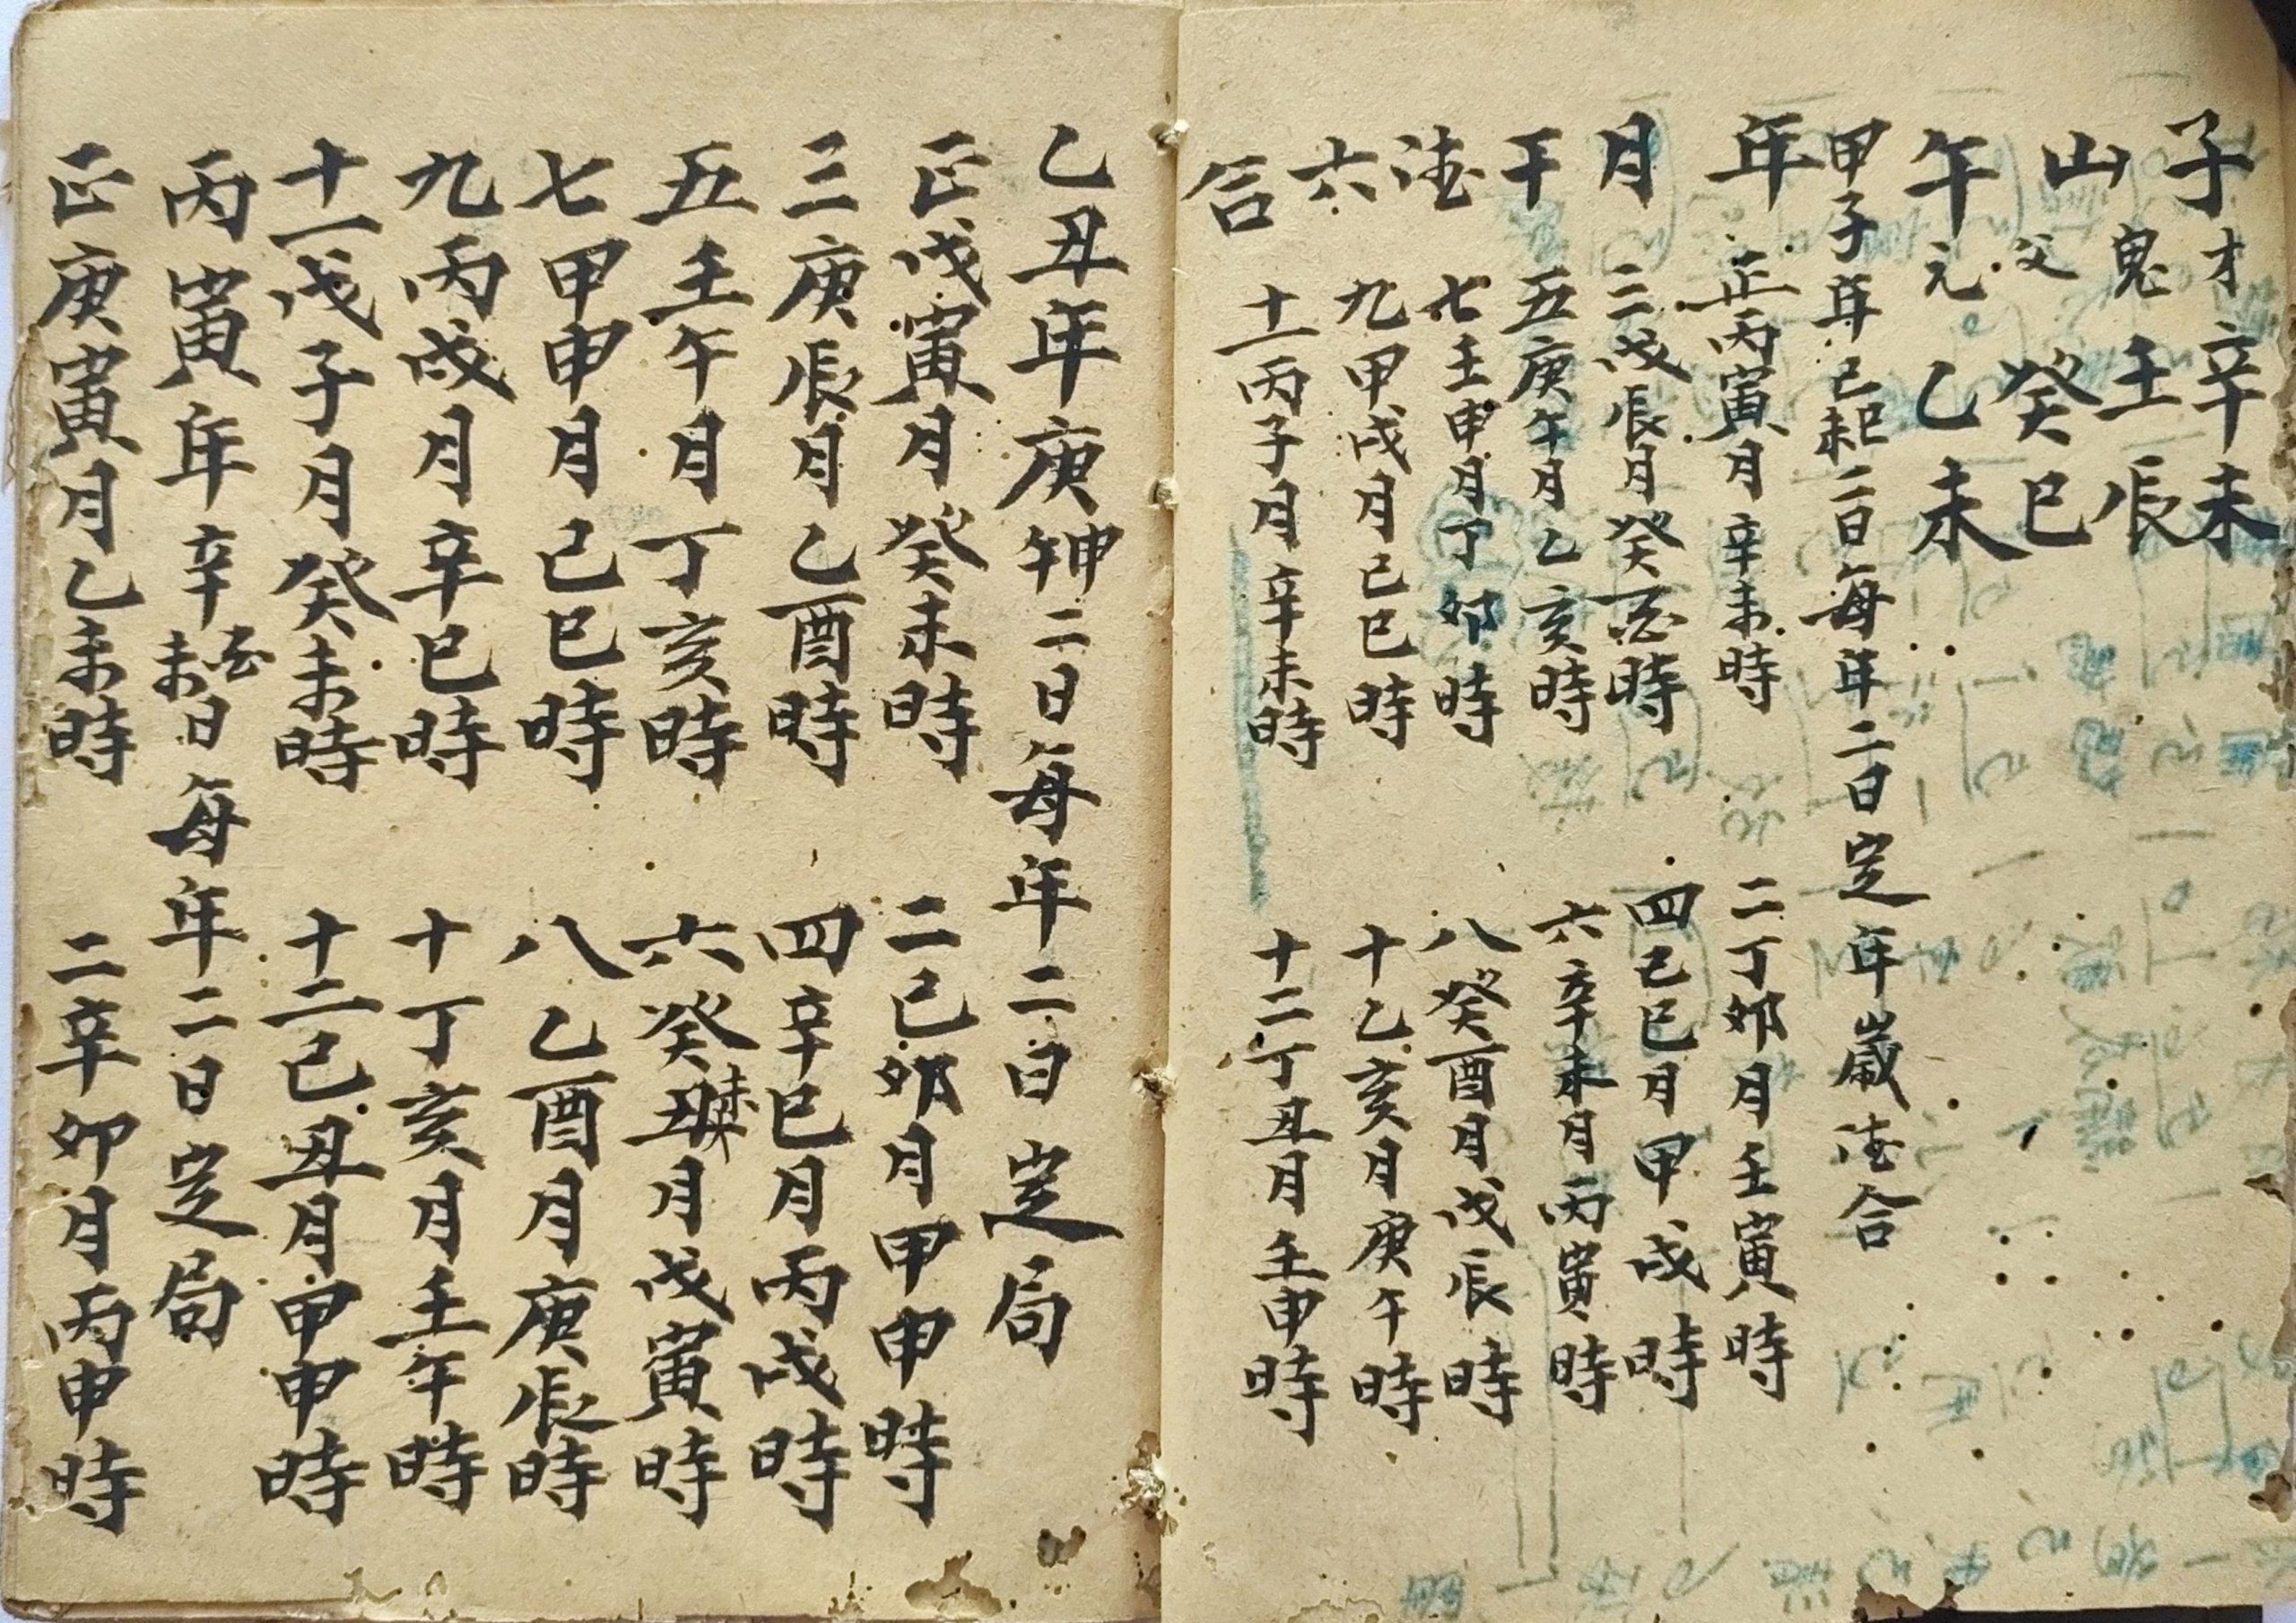 子才辛未
山鬼壬辰
父癸巳
午元乙未
甲子年己未巳二日每年二日定年歲德合
年月干德六合
正丙寅月辛未時
二丁卯月壬寅時
三戊辰月癸酉時
四己巳月甲戌時
五庚午月乙亥時
六辛未月丙寅時
七壬申月丁卯時
八癸酉月戊辰時
九甲戌月己巳時
十乙亥月庚午時
十一丙子月辛未時
十二丁丑月壬申時
乙丑年庚午申二日每年二日定局
正戊寅月癸未時
二己卯月甲申時
三庚辰月乙酉時
四辛巳月丙戌時
五壬午月丁亥時
六癸丑未月戊寅時
七甲申月己巳時
八乙酉月庚辰時
九丙戌月辛巳時
十丁亥月壬午時
十一戊子月癸未時
十二己丑月甲申時
丙寅年辛未酉日每年二日定局
正庚寅月乙未時
二辛卯月丙申時